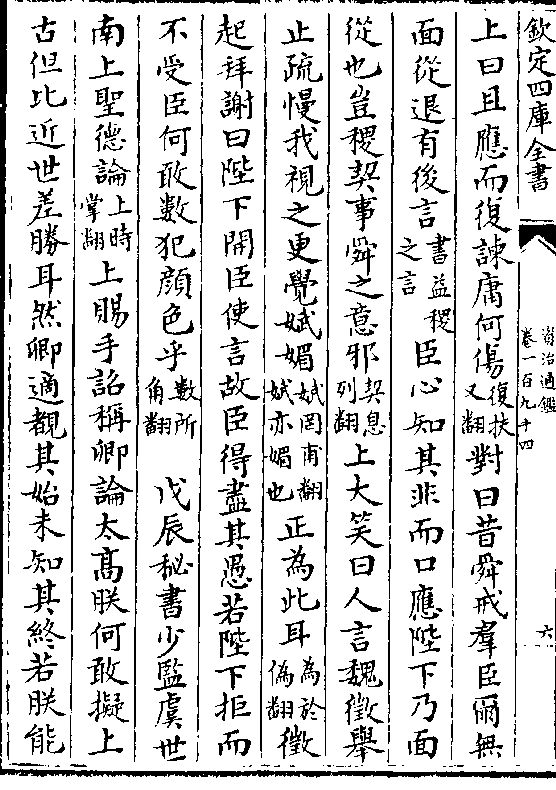 欽定四庫全書
資治通鑑
卷一百九十四
六
上曰且應而復諫庸何傷復扶又翻對曰昔舜戒羣臣爾無
面從退有後言書益稷之言臣心知其非而口應陛下乃面
從也豈稷契事舜之意邪契息列翻上大笑曰人言魏徵舉
止疏慢我視之更覺娬媚娬罔甫翻娬亦媚也正為此耳為於偽翻徵
起拜謝曰陛下開臣使言故臣得盡其愚若陛下拒而
不受臣何敢數犯顔色乎數所角翻 戊辰秘書少監虞世
南上聖德論上時掌翻上賜手詔稱卿論太髙朕何敢擬上
古但比近世差勝耳然卿適觀其始未知其終若朕能